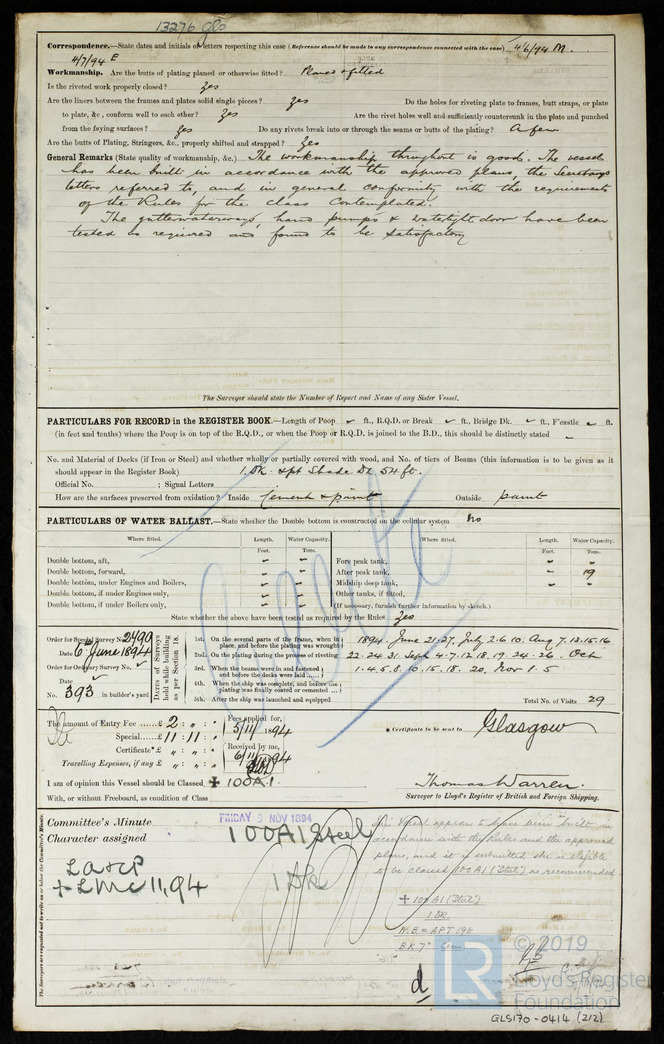 13276 Gls
Correspondence.—State dates and initials of letters respecting this case (Reference should be made to any correspondence connected with the case) 4/6/94 M.
4/7/94 E
Workmanship. Are the butts of plating planed or otherwise fitted? Planed & fitted
Is the riveted work properly closed? Yes
Are the liners between the frames and plates solid single pieces? yes Do the holes for riveting plate to frames, butt straps, or plate
to plate, &c., conform well to each other? Yes Are the rivet holes well and sufficiently countersunk in the plate and punched
from the faying surfaces? Yes Do any rivets break into or through the seams or butts of the plating? A few
Are the butts of Plating, Stringers, &c., properly shifted and strapped? Yes
General Remarks (State quality of workmanship, &c.) The workmanship throughout is good. The vessel
has been built in accordance with the approved plans, the Secretarys
letters referred to, and in general conformity with the requirements
of the Rules for the class contemplated.
The gutterwaterways, hand pumps & watertight door have been
tested as required and found to be satisfactory
The Surveyor should state the Number of Report and Name of any Sister Vessel.
PARTICULARS FOR RECORD in the REGISTER BOOK.—Length of Poop ft., R.Q.D. or Break ft., Bridge Dk. ft., F'castle ft.
(in feet and tenths) where the Poop is on top of the R.Q.D., or when the Poop or R.Q.D. is joined to the B.D., this should be distinctly stated
No. and Material of Decks (if Iron or Steel) and whether wholly or partially covered with wood, and No. of tiers of Beams (this information is to be given as it
should appear in the Register Book) 1 Dk. & pt Shade Dk 54 ft.
Official No. ; Signal Letters
How are the surfaces preserved from oxidation? Inside Cement & paint Outside paint
PARTICULARS OF WATER BALLAST.—State whether the Double bottom is constructed on the cellular system No
Where fitted. Length. Water Capacity. Where fitted. Length. Water Capacity.
Feet. Tons. Feet. Tons.
Double bottom, aft, Fore peak tank,
Double bottom, forward, After peak tank, 19
Double bottom, under Engines and Boilers, Midship deep tank,
Double bottom, if under Engines only, Other tanks, if fitted,
Double bottom, if under Boilers only, (If necessary, furnish further information by sketch.)
State whether the above have been tested as required by the Rules Yes
Order for Special Survey No. 2490
Date 6th June 1894
Order for Ordinary Survey No.
Date
No. 393 in builder's yard
Dates of Surveys held while building as per Section 18.
1st. On the several parts of the frame, when in place, and before the plating was wrought 1894. June 21.27, July 2.6.10. Aug 7.13.15.16
2nd. On the plating during the process of riveting 22.24.31. Sept 4.7.12.18.19.24.26. Oct
3rd. When the beams were in and fastened and before the decks were laid 1.4.5.8.10.15.18.20. Nov 1.5
4th. When the ship was complete, and before the plating was finally coated or cemented
5th. After the ship was launched and equipped
Total No. of Visits 29
The amount of Entry Fee £ 2 : " : "
Special £ 11 : 11 : "
Certificate* £ " : " : "
Travelling Expenses, if any £ " : " : "
Fees applied for, 5/11/1894
Received by me, 6/11/94
* Certificate to be sent to Glasgow
I am of opinion this Vessel should be Classed ✠ 100A.1.
With, or without Freeboard, as condition of Class
Thomas Warren.
Surveyor to Lloyd's Register of British and Foreign Shipping.
Committee's Minute FRIDAY 9 NOV 1894
Character assigned 100A1 Steel
1 Dk
LA&CP
✠ LMC 11,94
This Vessel appears to have been built in
accordance with the Rules and the approved
plans, and it is submitted she is eligible
to be classed 100A1 ("Steel") as recommended
✠ 100A1 (Steel)
1 DK.
W.B. = APT 19t
BK 7" Cem
d
The Surveyors are requested not to write on or below the Committee's Minute.
© 2019
LR
Lloyd's Register
Foundation
GLS170-0414 (212)